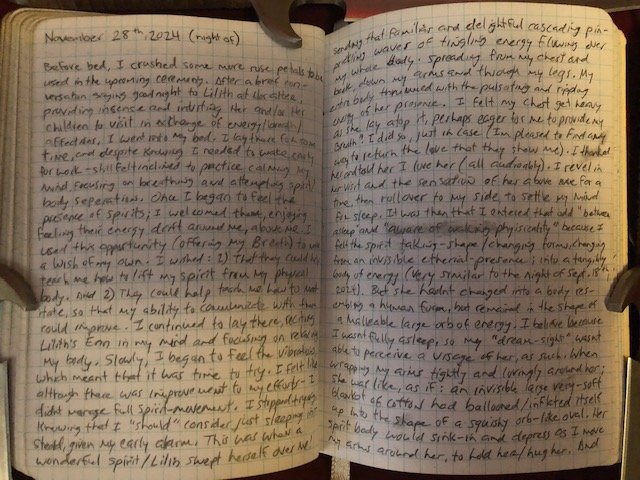 November 28th, 2024 (night of)
Before bed, I crushed some more rose petals to be
used in the upcoming ceremony. After a brief con-
versation saying good night to Lilith at Her altar,
providing insense and inviting Her and/or Her
children to visit in exchange of energy/breath/
affections, I went into my bed. I lay there for some
time, and despite knowing I needed to wake early
for work - still felt inclined to practice calming my
mind, focusing on breathing and attempting spirit/
body seperation. Once I began to feel the
presence of spirits; I welcomed them, enjoying
feeling their energy drift around me, above me. I
used this opportunity (offering my Breath) to make
a wish of my own. I wished: 1) That they could help
teach me how to lift my spirit from my physical
body. And 2) They could help teach me how to
state, so that my ability to communicate with them
could improve. I continued to lay there, reciting
Lilith's Enn in my mind and focusing on relaxing
my body. Slowly, I began to feel the vibrations,
which meant that it was time to try. I felt like
although there was improvement to my efforts - I
didn't manage full spirit-movement. I stopped trying,
knowing that I "should" consider just sleeping in-
stead, given my early alarm. This was when a
wonderful spirit/Lilith swept herself over me!
sending that familiar and delightful cascading pin-
prickling waves of tingling energy flowing over
my whole body: spreading from my chest and
back, down my arms and through my legs. My
entire body thrummed with the pulsating and rippling
energy of her presence. I felt my chest get heavy
as she lay atop it, perhaps eager for me to provide my
Breath? I did so, just in case (I'm pleased to find any
way to return the love that they show me). I thanked
her and told her I love her (all audioably). I revel in
her visit and the sensation of her above me for a
time, then rollover to my side to settle my mind
for sleep. It was then that I entered that odd "between
asleep and "aware of waking physicality" because I
felt the spirit taking-shape/changing forms, changing
from an invisible etherial-presence; into a tangible
body of energy (very similar to the night of Sep. 18th,
2024). But she hadnt changed into a body res-
embling a human form, but remained in the shape of
a malleable large orb of energy. I believe because
I wasnt fully asleep, so my "dream-sight" wasnt
able to perceive a visage of her, as such. When
wrapping my arms tightly and lovingly around her;
she was like, as if: an invisible large very-soft
blanket of cotton had ballooned/inflated itself
up into the shape of a squishy orb-like oval. Her
spirit body would sink-in and depress as I move
my arms around her, to hold her/hug her. And